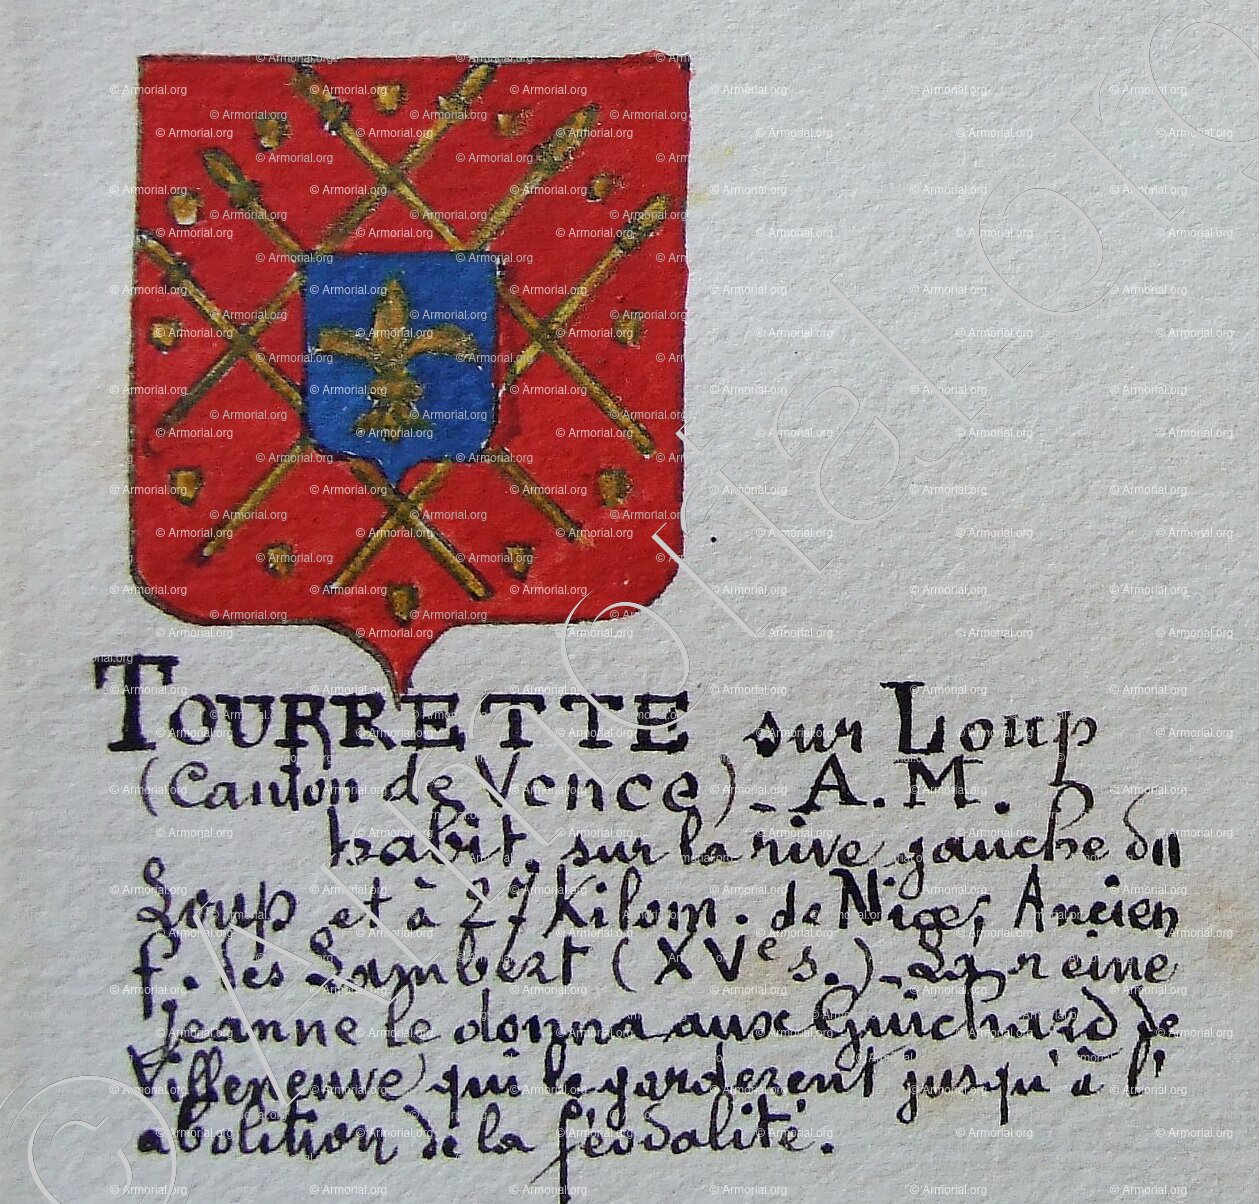 TOURRETTE sur Loup
(Canton de Vence)_ A. M.
habit. sur la rive gauche du
Loup et à 27 Kilom. de Nice; Ancien
f. des Lambert (XVe s.)_ La reine
Jeanne le donna aux Guichard de
Villeneuve qui le garderent jusqu'à l'
abolition de la féodalité.
© Armorial.org